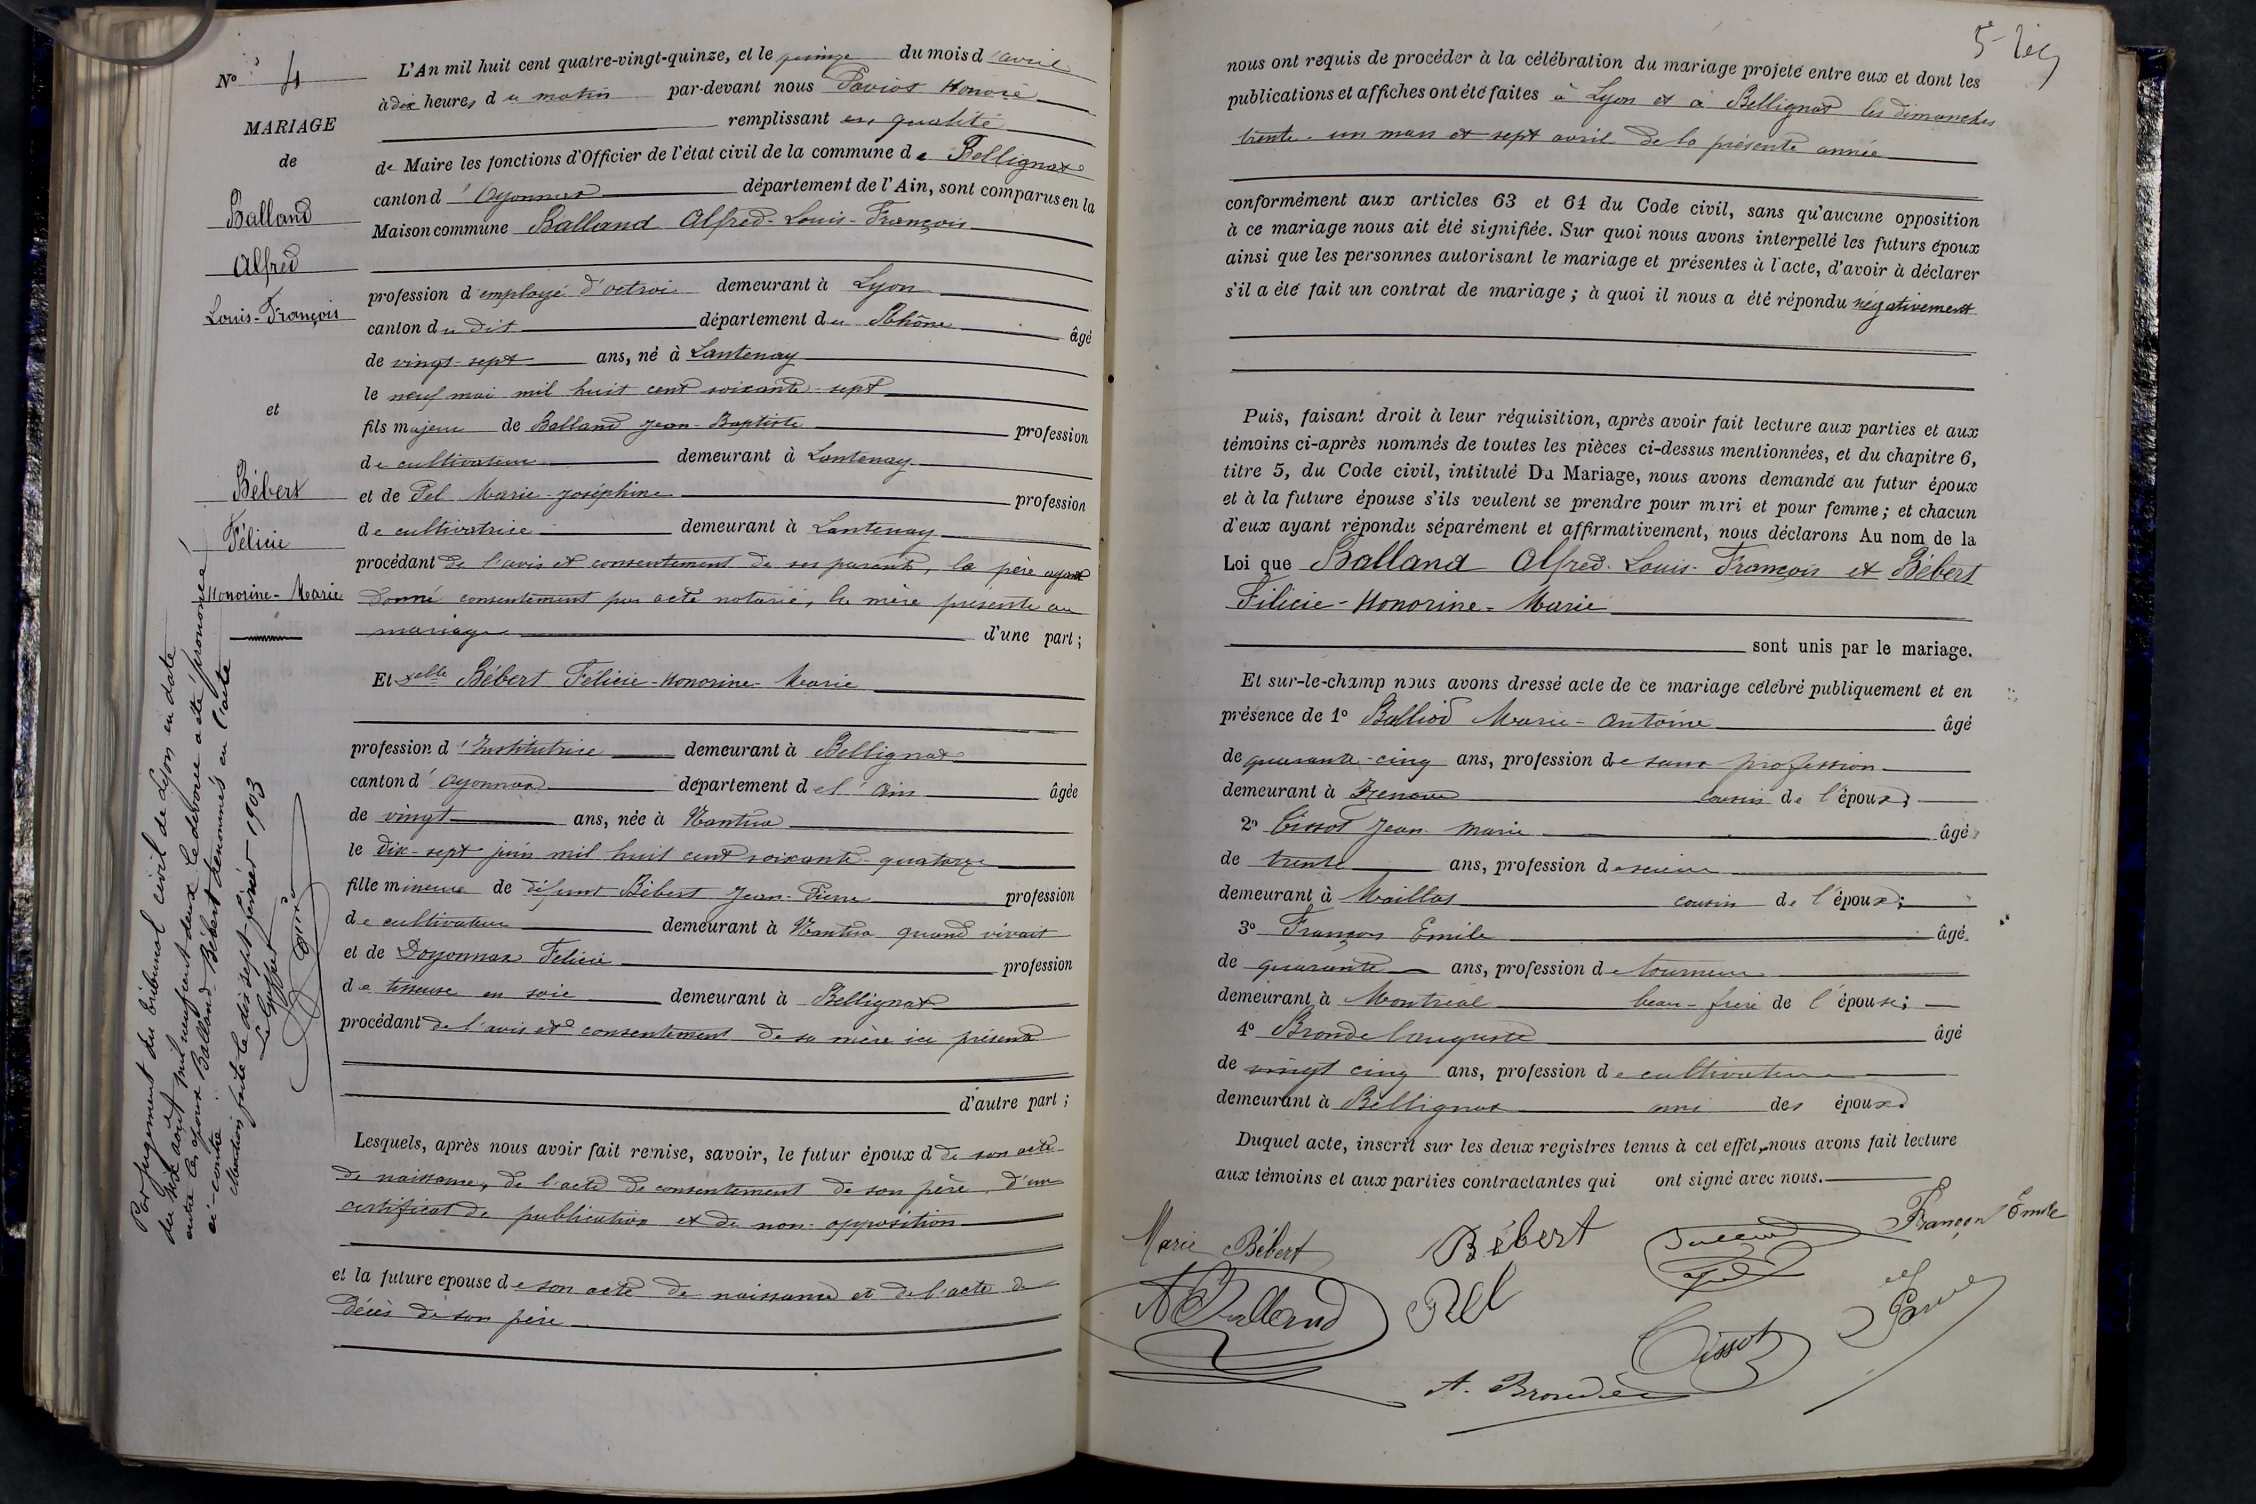 N° 4
MARIAGE
de
Balland
Alfred
Louis-François
et
Bébert
Félicie
Honorine-Marie
Par jugement du tribunal civil de Lyon en date
du six août mil neuf cent deux le divorce a été prononcé
entre les époux Balland-Bébert dénommés en l'acte
ci-contre
Mention faite le dix sept février 1903
Le Greffier
L'An mil huit cent quatre-vingt-quinze, et le quinze du mois d'avril
à dix heures du matin par-devant nous Paviot Honoré
remplissant en qualité
de Maire les fonctions d'Officier de l'état civil de la commune de Bellignat
canton d'Oyonnax département de l'Ain, sont comparus en la
Maison commune Balland Alfred-Louis-François
profession d'employé d'octroi demeurant à Lyon
canton du dit département du Rhône âgé
de vingt-sept ans, né à Lantenay
le neuf mai mil huit cent soixante-sept
fils majeur de Balland Jean-Baptiste profession
de cultivateur demeurant à Lantenay
et de Pel Marie-Joséphine profession
de cultivatrice demeurant à Lantenay
procédant de l'avis et consentement de ses parents, le père ayant
donné consentement par acte notarié, la mère présente au
mariage d'une part;
Et Delle Bébert Félicie-Honorine-Marie
profession d'Institutrice demeurant à Bellignat
canton d'Oyonnax département de l'Ain âgée
de vingt ans, née à Nantua
le dix-sept juin mil huit cent soixante-quatorze
fille mineure de défunt Bébert Jean-Pierre profession
de cultivateur demeurant à Nantua quand vivait
et de Doyonnax Félicie profession
de tisseuse en soie demeurant à Bellignat
procédant de l'avis et consentement de sa mère ici présente
d'autre part;
Lesquels, après nous avoir fait remise, savoir, le futur époux d de son acte
de naissance, de l'acte de consentement de son père, d'un
certificat de publication et de non-opposition
et la future epouse de son acte de naissance et de l'acte de
décès de son père
nous ont requis de procéder à la célébration du mariage projeté entre eux et dont les
publications et affiches ont été faites à Lyon et à Bellignat les dimanches
trente-un mars et sept avril de la présente année
conformément aux articles 63 et 64 du Code civil, sans qu'aucune opposition
à ce mariage nous ait été signifiée. Sur quoi nous avons interpellé les futurs époux
ainsi que les personnes autorisant le mariage et présentes à l'acte, d'avoir à déclarer
s'il a été fait un contrat de mariage; à quoi il nous a été répondu négativement
Puis, faisant droit à leur réquisition, après avoir fait lecture aux parties et aux
témoins ci-après nommés de toutes les pièces ci-dessus mentionnées, et du chapitre 6,
titre 5, du Code civil, intitulé Du Mariage, nous avons demandé au futur époux
et à la future épouse s'ils veulent se prendre pour mari et pour femme; et chacun
d'eux ayant répondu séparément et affirmativement, nous déclarons Au nom de la
Loi que Balland Alfred-Louis-François et Bébert
Félicie-Honorine-Marie
sont unis par le mariage.
Et sur-le-champ nous avons dressé acte de ce mariage célebré publiquement et en
présence de 1° Balliod Marie-Antoine âgé
de quarante-cinq ans, profession de sans profession
demeurant à cousin de l'époux;
2° Tissot Jean Marie âgé
de trente ans, profession de scieur
demeurant à Maillat cousin de l'époux;
3° Françon Emile âgé
de quarante ans, profession de tourneur
demeurant à Montréal beau-frère de l'épouse;
4° Bronde Auguste âgé
de vingt cinq ans, profession de cultivateur
demeurant à Bellignat ami des époux
Duquel acte, inscrit sur les deux registres tenus à cet effet, nous avons fait lecture
aux témoins et aux parties contractantes qui ont signé avec nous.
Marie Bébert Bébert Françon Emile
A Balland Pel
Tissot